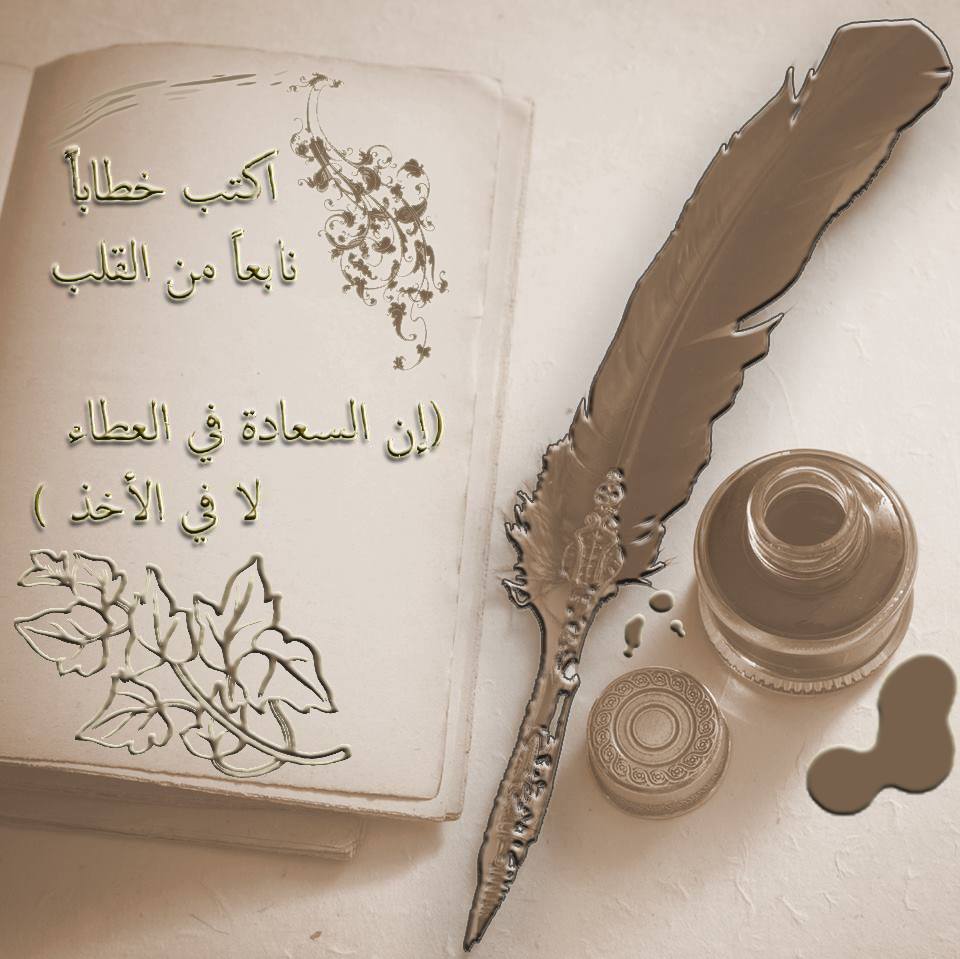 اكتب خطاباً
نابعاً من القلب
(إن السعادة في العطاء
لا في الأخذ )